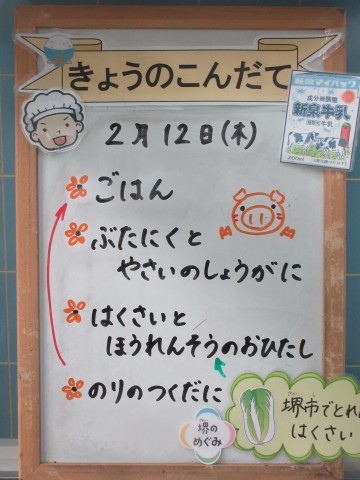 きょうのこんだて
2月12日(木)
ごはん
ぶたにくと
やさいのしょうがに
はくさいと
ほうれんそうのおひたし
のりのつくだに
成分無調整
新泉牛乳
200ml
堺の
めぐみ
堺市でとれた
はくさい